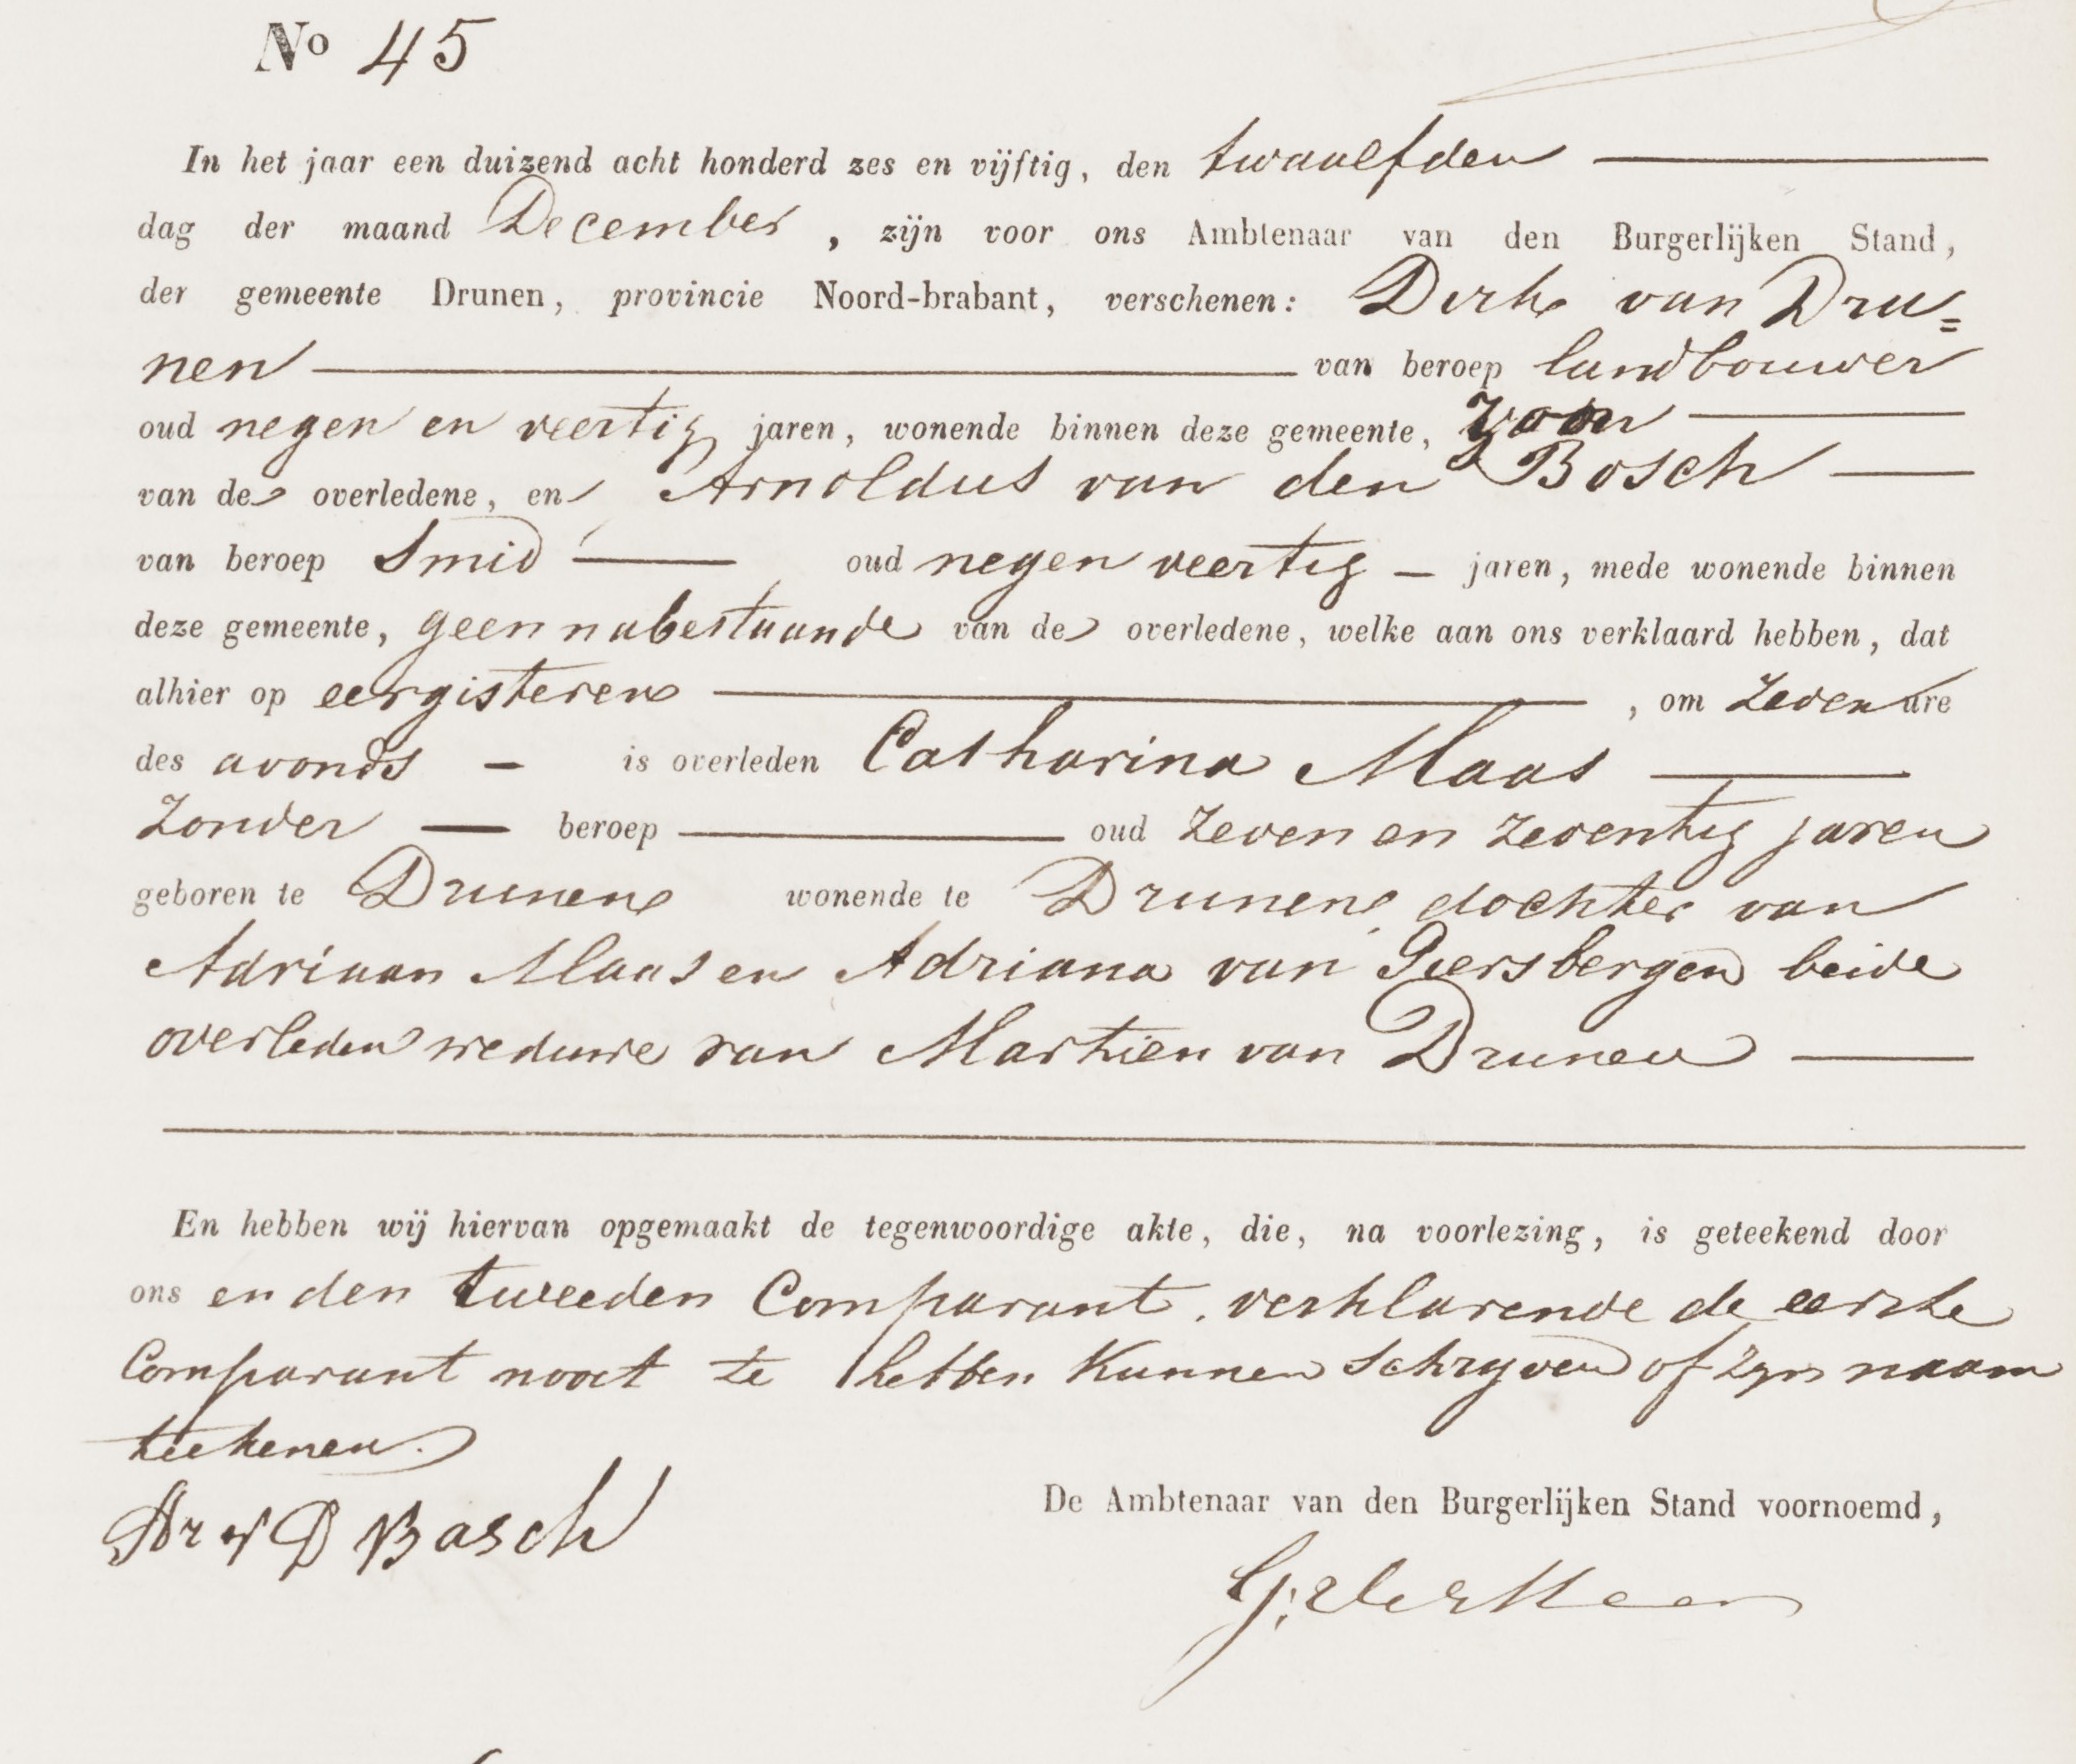 No 45
In het jaar een duizend acht honderd zes en vijftig, den twaalfden
dag der maand December, zijn voor ons Ambtenaar van den Burgerlijken Stand,
der gemeente Drunen, provincie Noord-brabant, verschenen: Dirk van Dru=
nen van beroep landbouwer
oud negen en veertig jaren, wonende binnen deze gemeente, zoon
van de overledene, en Arnoldus van den Bosch
van beroep Smid oud negen veertig jaren, mede wonende binnen
deze gemeente, geen nabestaande van de overledene, welke aan ons verklaard hebben, dat
alhier op eergisteren, om zeven ure
des avonds is overleden Catharina Maas
Zonder beroep oud zeven en zeventig jaren
geboren te Drunen wonende te Drunen dochter van
Adriaan Maas en Adriana van Giersbergen beide
overleden weduwe van Martien van Drunen
En hebben wij hiervan opgemaakt de tegenwoordige akte, die, na voorlezing, is geteekend door
ons en den tweeden Comparant. verklarende de eerste
Comparant nooit te hebben kunnen schryven of zyn naam
teekenen.
Ar v D Bosch
De Ambtenaar van den Burgerlijken Stand voornoemd,